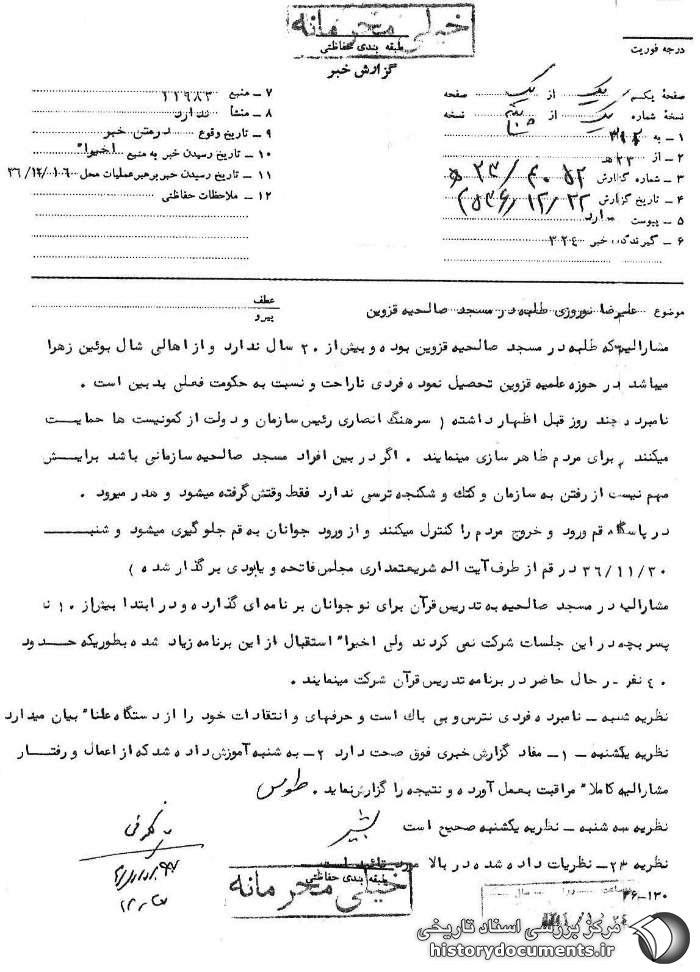 خیلی محرمانه
طبقه بندی حفاظتی
گزارش خبر
درجه فوریت
صفحه یکم یک از یک صفحه
نسخه شماره یک از نسخه
۱ ـ به ۳۱۲
۲ ـ از ۲۳ هـ
۳ ـ شماره گزارش
۴ ـ تاریخ گزارش ۲۵۳۶/۱۲/۲۲
۵ ـ پیوست ندارد
۶ ـ گیرندگان خبر ۳۲۴
۷ ـ منبع ۱۱۹۸۳
۸ ـ منشأ ندارد
۹ ـ تاریخ وقوع درمتن خبر
۱۰ ـ تاریخ رسیدن خبر به منبع اخیرا"
۱۱ ـ تاریخ رسیدن خبر برهبر عملیات محل
۱۲ ـ ملاحظات حفاظتی
موضوع علیرضا نوروزی طلبه در مسجد صالحیه قزوین
عطف
پیرو
مشارالیه که طلبه در مسجد صالحیه قزوین بوده و بیش از ۲۰ سال ندارد و از اهالی شال بوئین زهرا
میباشد در حوزه علمیه قزوین تحصیل نموده فردی ناراحت و نسبت به حکومت فعلی بدبین است .
نامبرده چند روز قبل اظهار داشته ( سرهنگ انصاری رئیس سازمان و دولت از کمونیست ها حمایت
میکنند و برای مردم ظاهر سازی مینمایند . اگر در بین افراد مسجد صالحیه سازمانی باشد برایش
مهم نیست از رفتن به سازمان و کتک و شکنجه ترسی ندارد فقط وقتش گرفته میشود و هدر میرود .
در پاسگاه قم ورود و خروج مردم را کنترل میکنند و از ورود جوانان به قم جلوگیری میشود و شنبـــه
۳۶/۱۱/۳۰ در قم از طرف آیت اله شریعتمداری مجلس فاتحه و یابودی برگذار شده )
مشارالیه در مسجد صالحیه به تدریس قرآن برای نوجوانان برنامه ای گذارده و در ابتدا بیش از ۱۰ تا
پسر بچه در این جلسات شرکت نمی کردند ولی اخیرا" استقبال از این برنامه زیاد شده بطوریکه حـــدود
۴۰ نفر در حال حاضر در برنامه تدریس قرآن شرکت مینمایند .
نظریه شنبه ـ نامبرده فردی نترس و بی باک است و حرفهای و انتقادات خود را از دستگاه علنا" بیان میدارد
نظریه یکشنبه ـ ۱ـ مفاد گزارش خبری فوق صحت دارد ۲ـ به شنبه آموزش داده شد که از اعمال و رفتـــار
مشارالیه کاملا" مراقبت بعمل آورده و نتیجه را گزارش نماید . طوس
نظریه سه شنبه ـ نظریه یکشنبه صحیح است
بشیر
نظریه ۲۳ـ نظریات داده شده در بالا مورد تائید است
طبقه بندی حفاظتی
خیلی محرمانه
۳۶-۱۳۰
مرکز بررسی اسناد تاریخی
historydocuments.ir